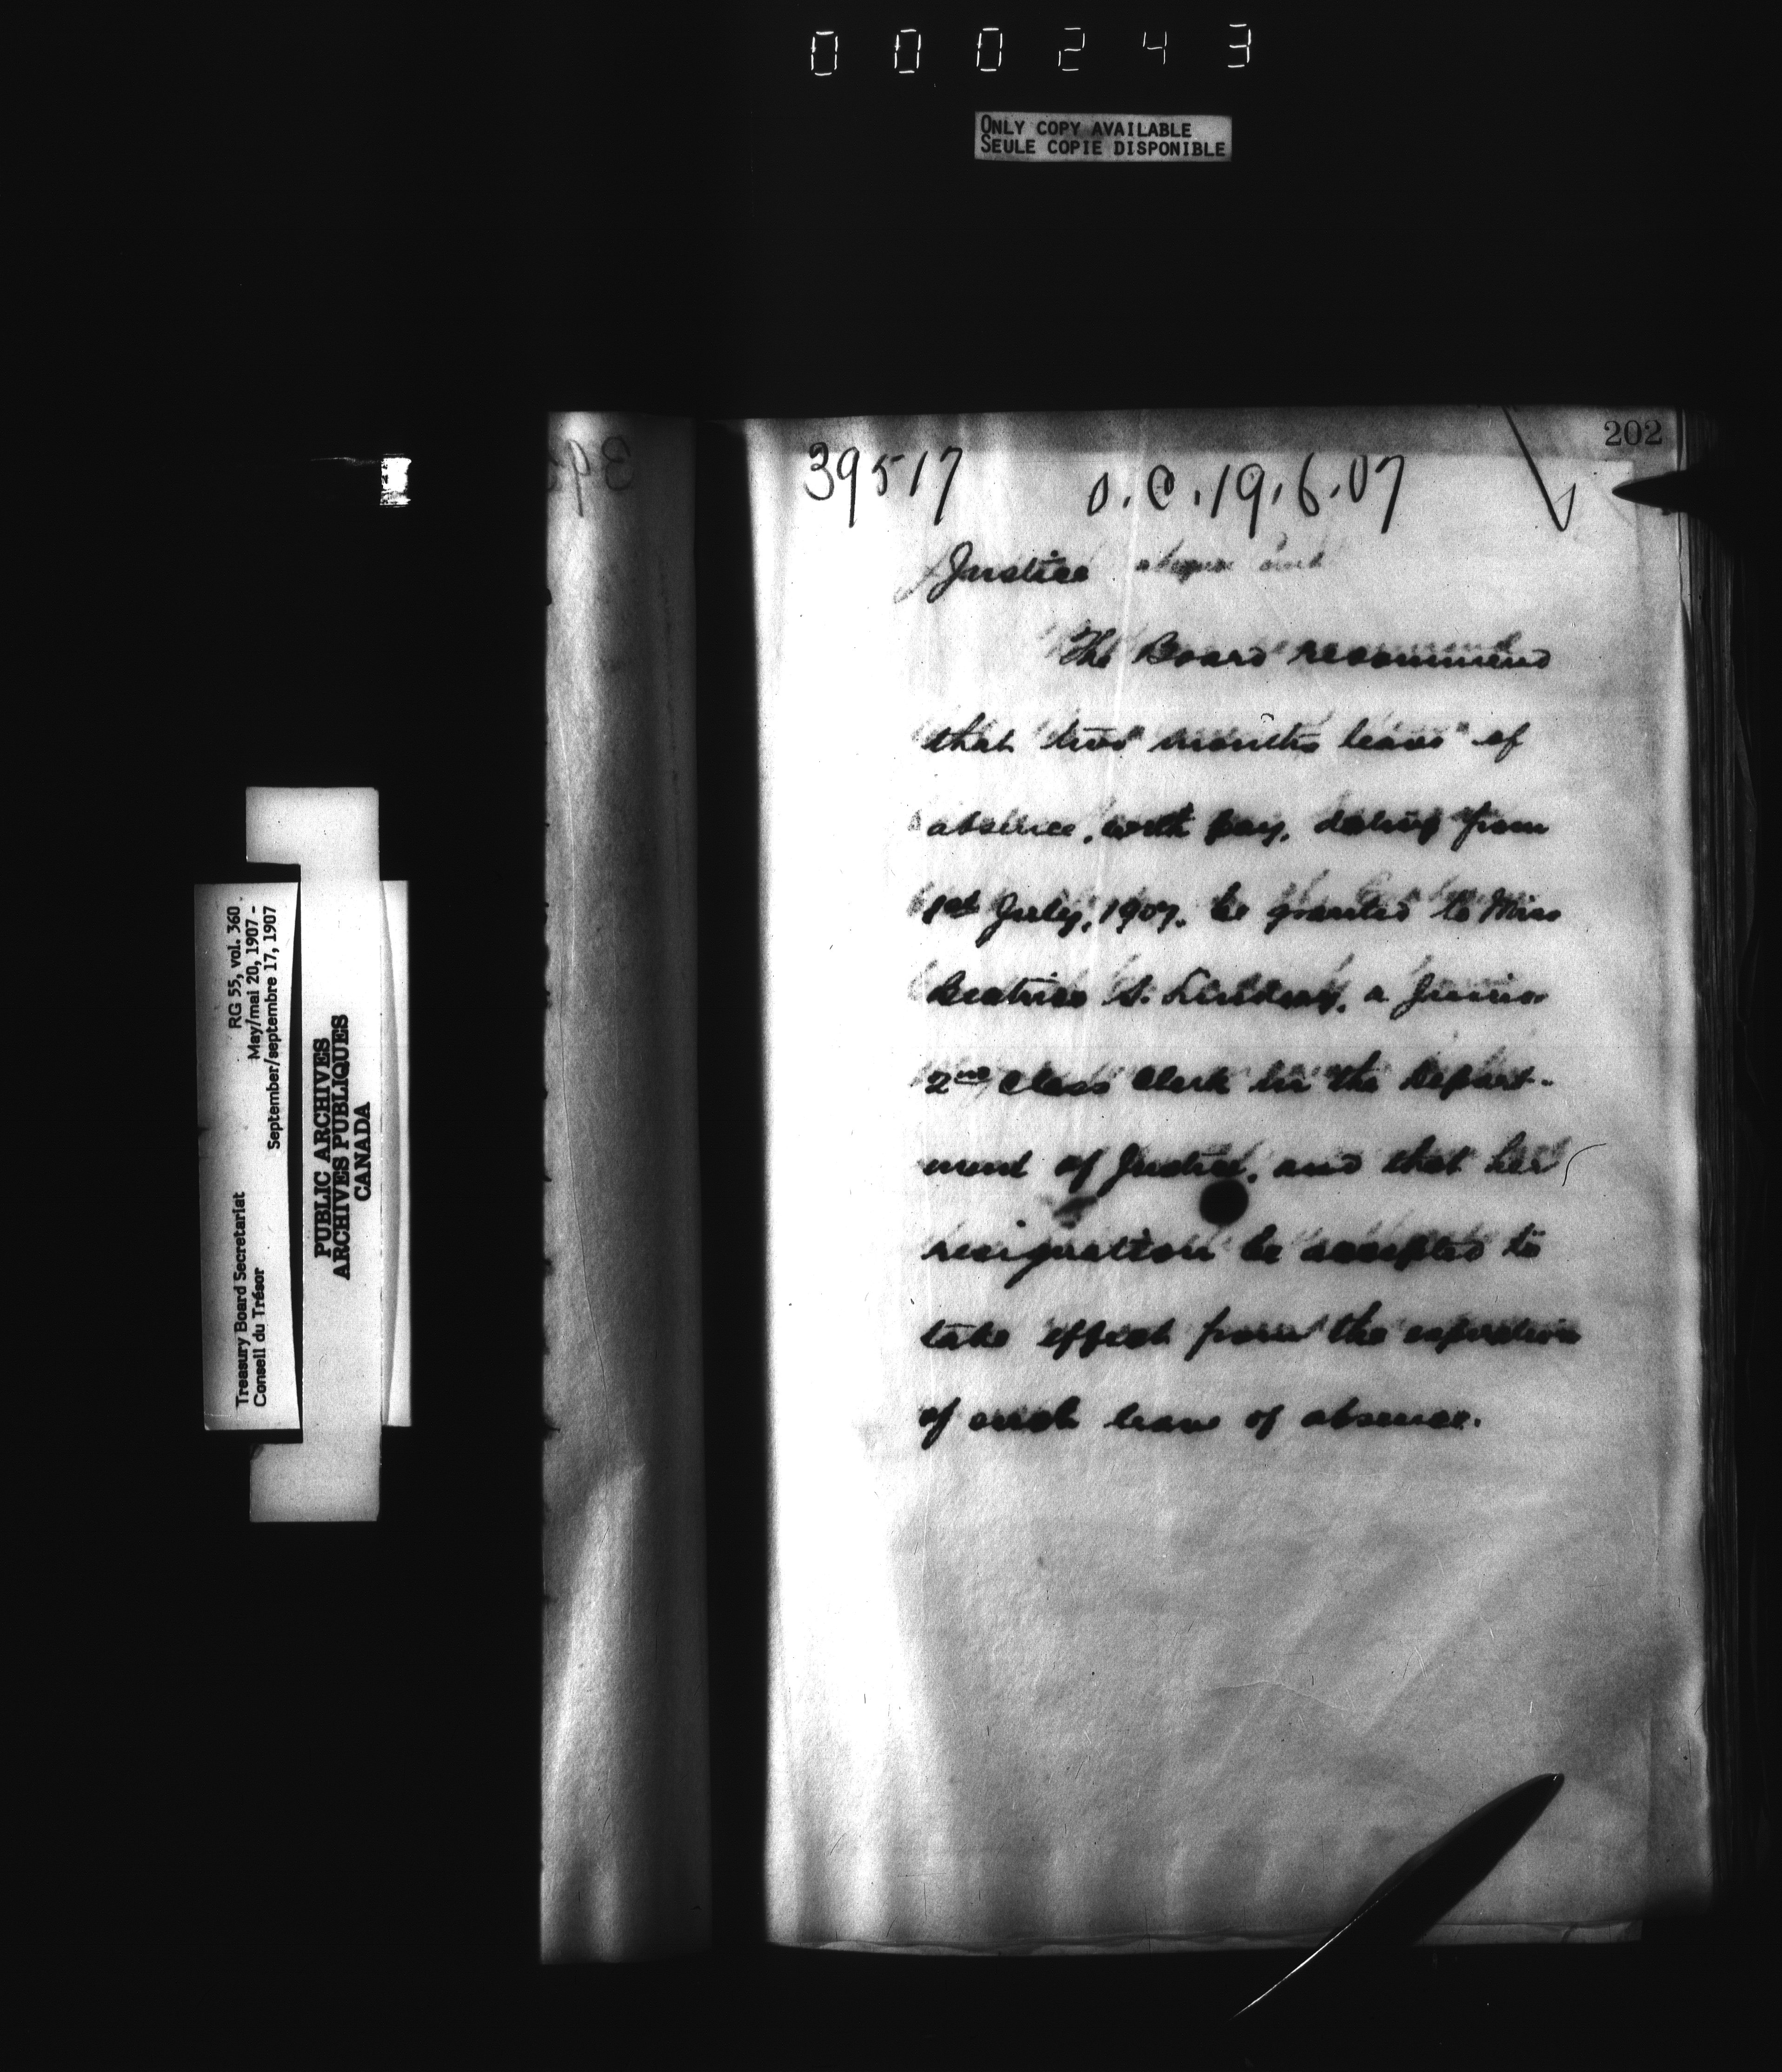 000243
ONLY COPY AVAILABLE
SEULE COPIE DISPONIBLE
202
39517 O.C. 19.6.07
Justice
The Board recommend
that two months leave of
absence, with pay, dating from
1st July, 1907, be granted to Miss
Beatrice S. Lindsay, a Junior
2nd Class Clerk in the Depart-
ment of Justice, and that her
resignation be accepted to
take effect from the expiration
of such leave of absence.
Treasury Board Secretariat RG 55, vol. 360
Conseil du Trésor May/mai 20, 1907 -
September/septembre 17, 1907
PUBLIC ARCHIVES
ARCHIVES PUBLIQUES
CANADA